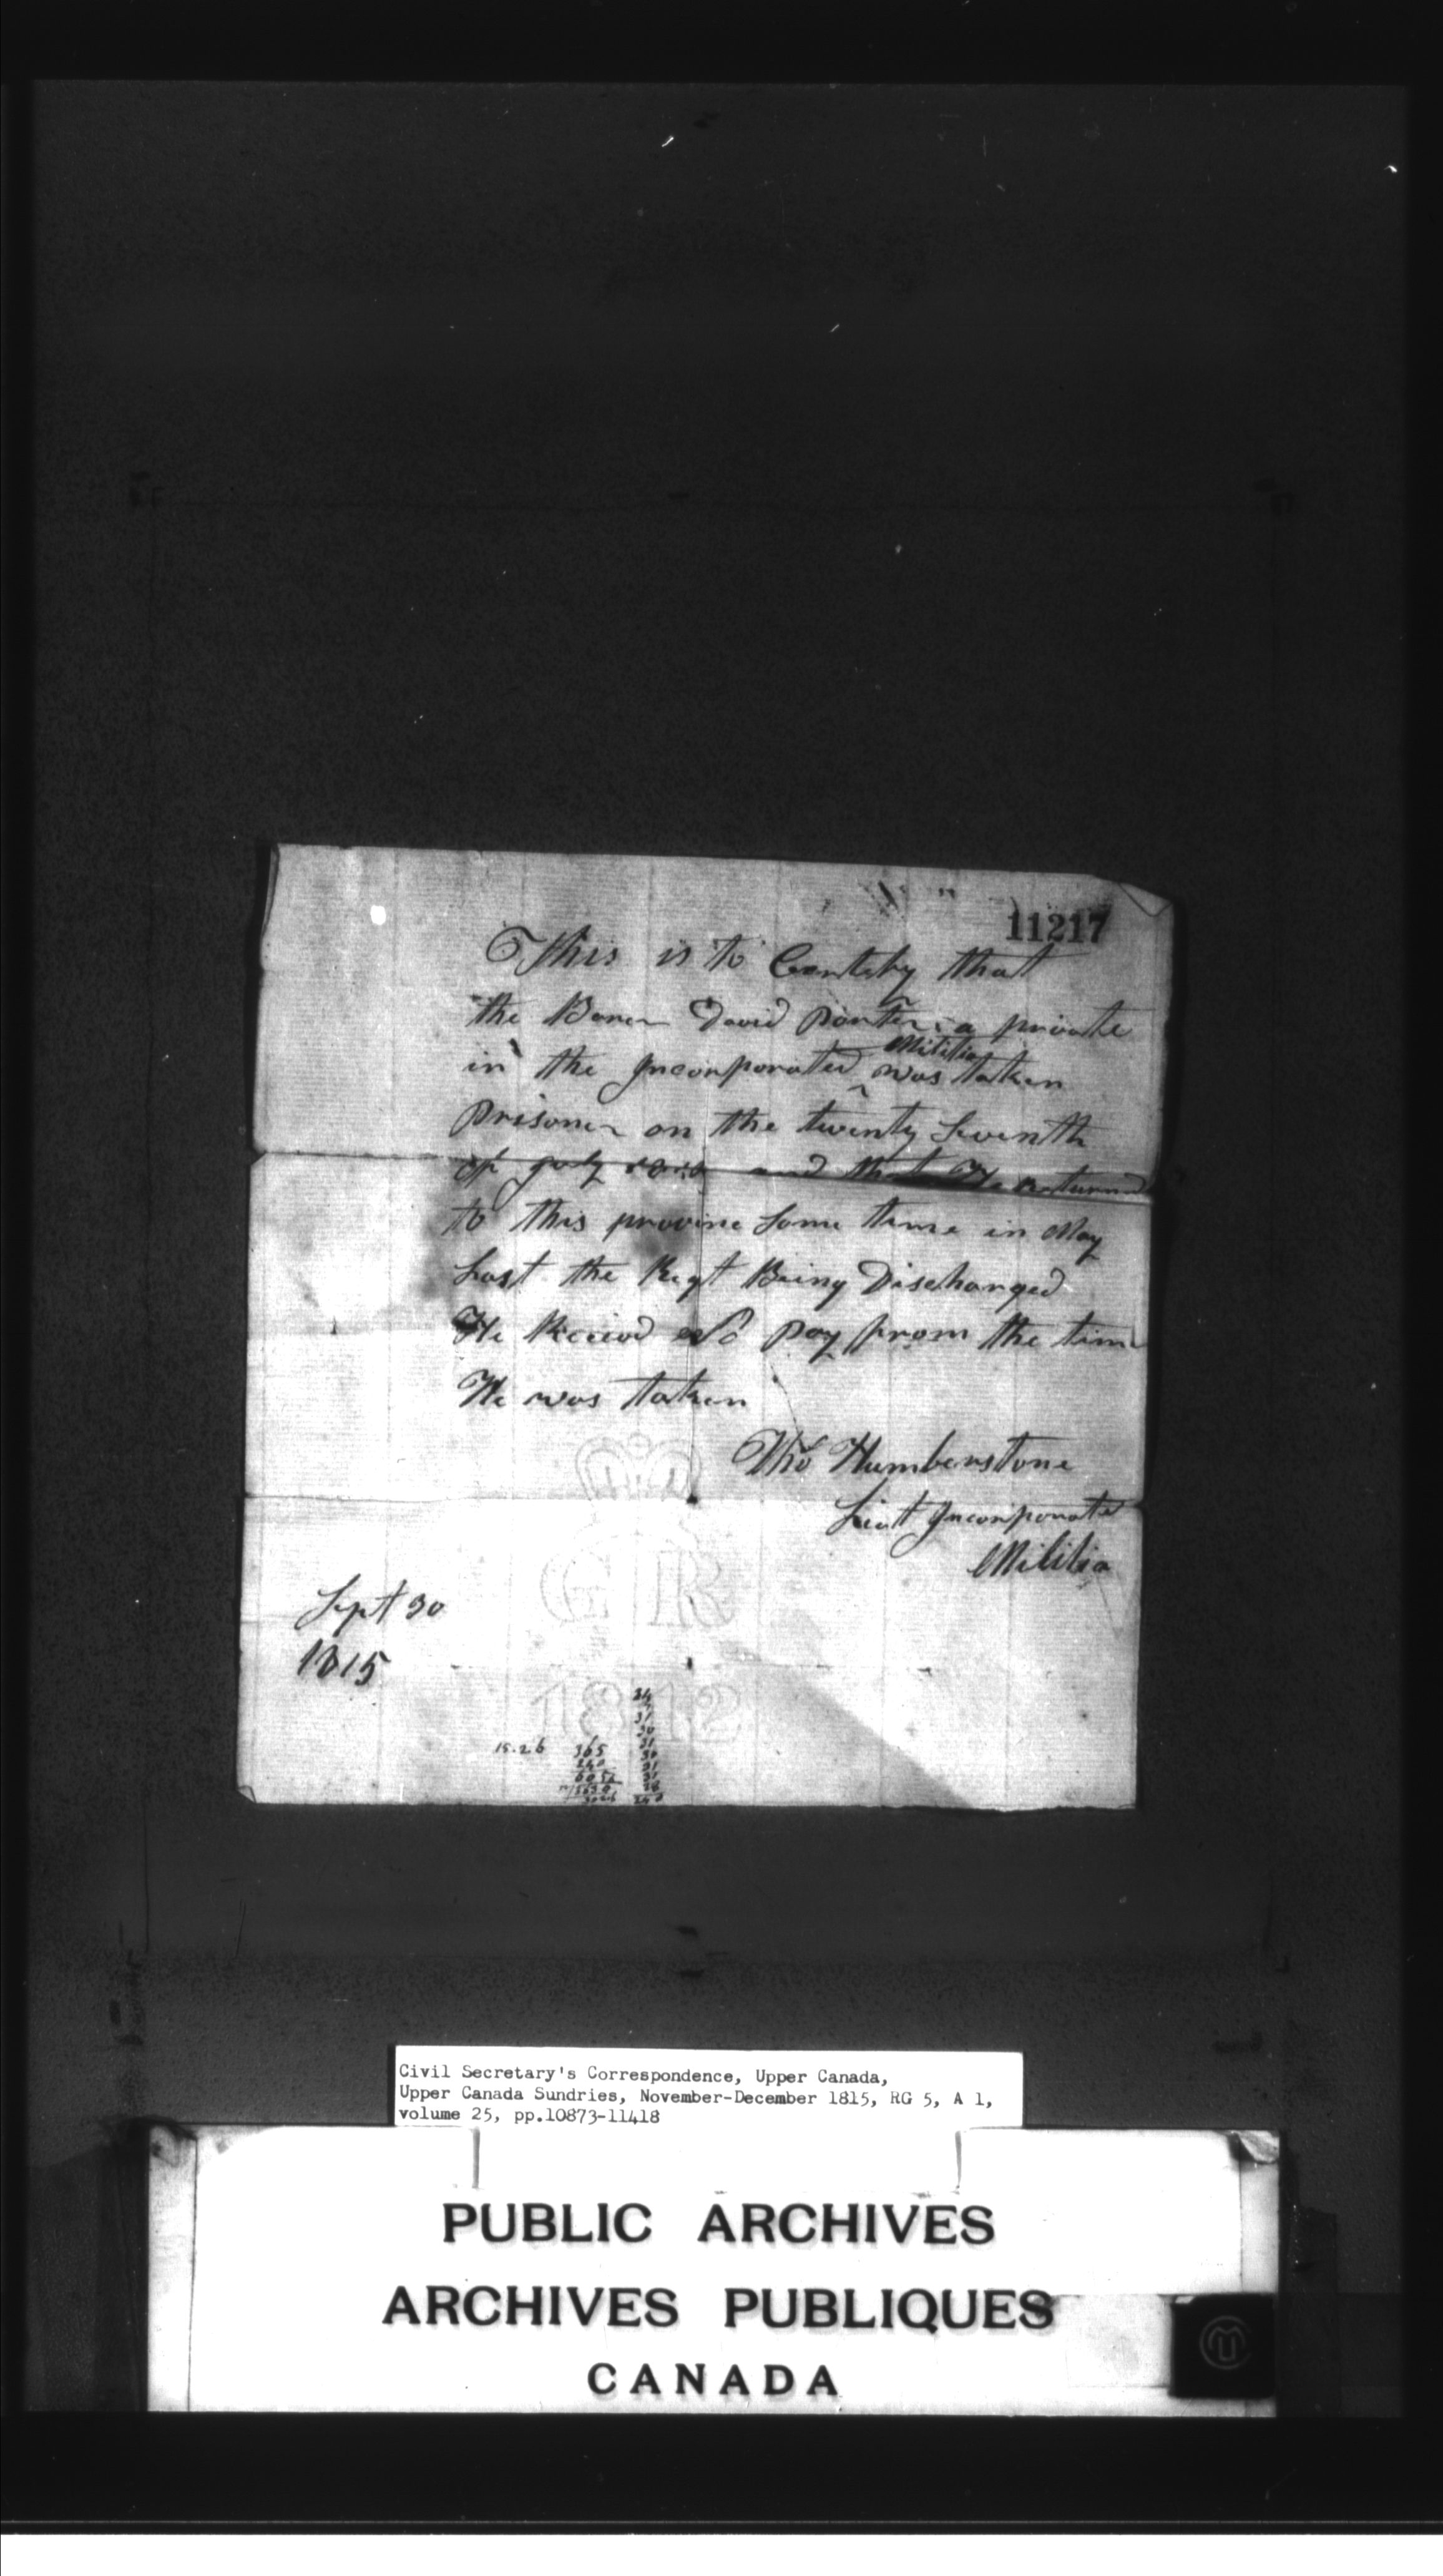 11217
This is to Certefy that
the Barer David Porter a private
in the Incorporated ^ Militia was taken
Prisoner on the twenty Seventh
of July and that He returned
to this provine Some time in May
Last the Regt Being Discharged
He Receiod No Pay from the time
He was taken
Tho Humberstone
Liut Incorporate
Militia
Sept 30
1815
GR
1812
15.2.6 365
240
31
30
31
240
Civil Secretary's Correspondence, Upper Canada,
Upper Canada Sundries, November-December 1815, RG 5, A 1,
volume 25, pp.10873-11418
PUBLIC ARCHIVES
ARCHIVES PUBLIQUES
CANADA